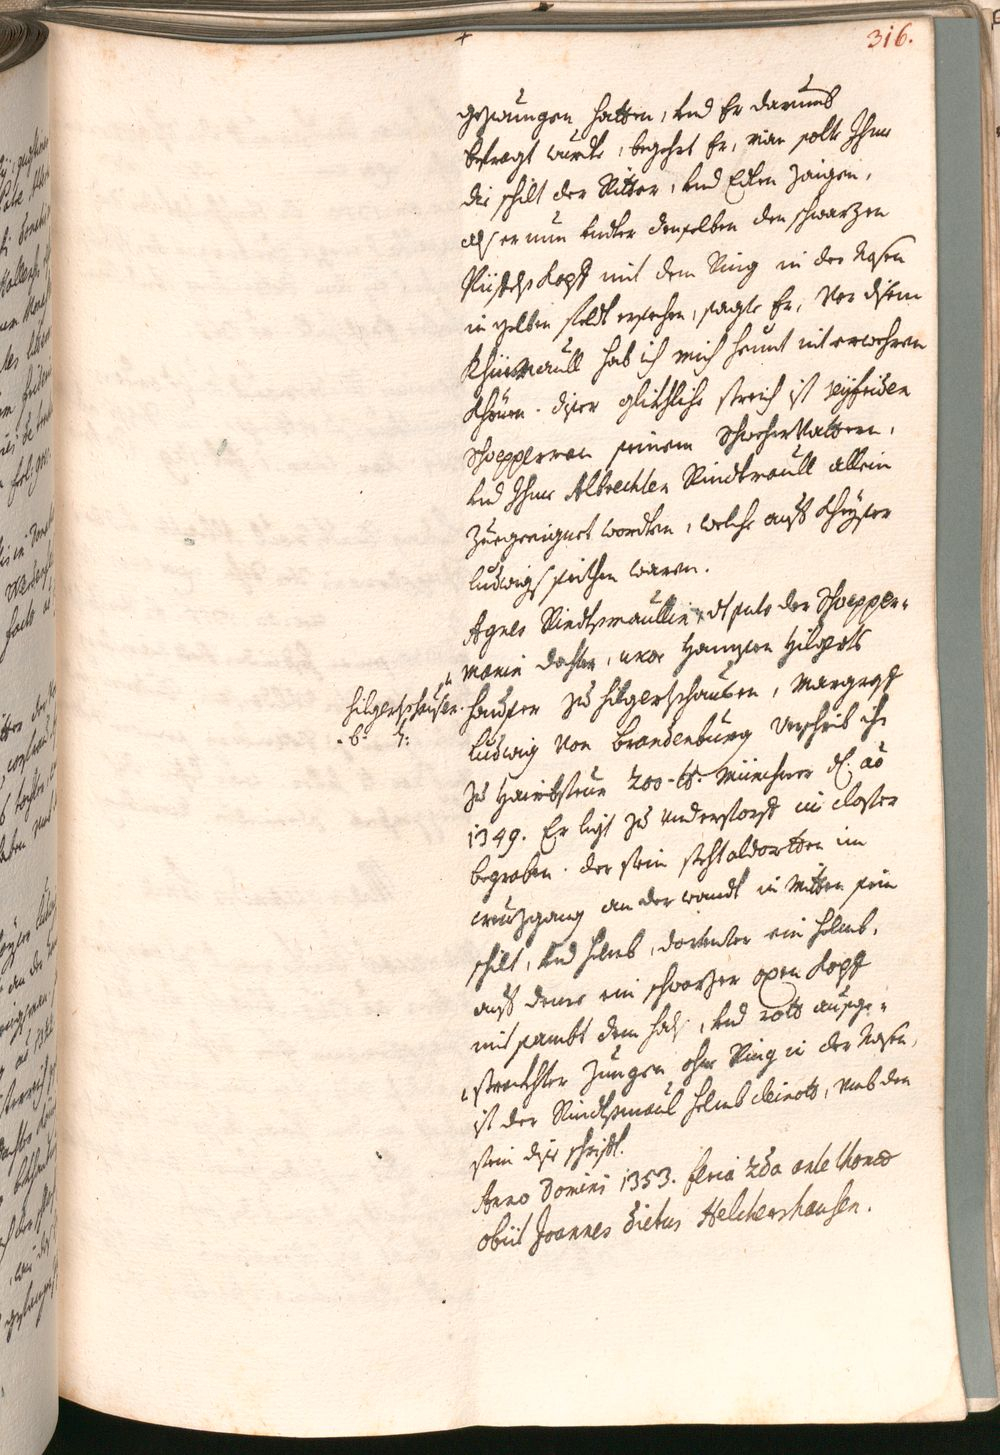 316.
gezwungen hatten, und Er darumb
befragt wurde, begehrt Er, man solte Ihme
die schilt der Ritter, und Edlen zaigen,
als er nun under denselben den schwarzen
Küheskopf mit dem Ring in der Nasen
in gelben feldt ersehen, sagte Er, Vor disem
Khüemaull hab ich mich heunt nit erwehren
khönen. diser glikhliche streich ist Seyfriden
Schwepperman seinem SchwecherVattern,
und Ihme Albrechten Rindtmaull allein
zuegeeignet worden, welche auf Khayser
Ludwigs seithen waren.
Agnes Rindtsmaullin, des der Schwepper-
manin dochter, uxor Hannsen Hilgerts
hauser zu Hilgertshausen, Margraf
Hilgertshauser.
Ludwig von Brandenburg verschrib ihr
zu Heiratsteur 200 lb. Münchner dl. ao
1349. Er ligt zu Understorff im Closter
begraben. der stein steht aldortten im
creuzgang an der wandt in mitten sein
schilt, und helmb, darunder ein helmb,
auf deme ein schwarzer open kopf
mit sambt dem hals, und rott ausge-
strekhter Zungen ohne Ring in der Nasen,
ist der Rindtsmaul helmb cleinott, umb den
stein dise schrifft.
Anno Domini 1353. feria 2da ante
obiit Joannes dictus Helchershausen.